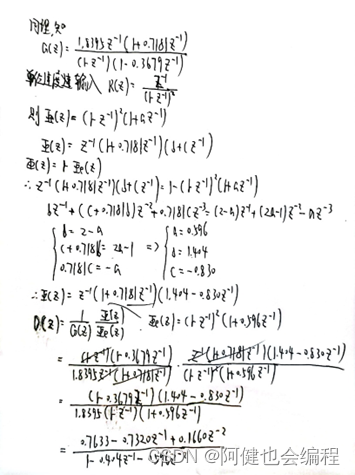 同理,知
G(z)=\frac{1.8395z^{-1}(1+0.718z^{-1})}{(1-z^{-1})(1-0.3679z^{-1})}
单位速度输入 R(z)=\frac{z^{-1}}{(1-z^{-1})^2}
则 Φe(z)=(1-z^{-1})^2(1+az^{-1})
Φ(z)=z^{-1}(1+0.718z^{-1})(b+cz^{-1})
Φ(z)=1-Φe(z)
∴z^{-1}(1+0.718z^{-1})(b+cz^{-1})=1-(1-z^{-1})^2(1+az^{-1})
bz^{-1}+(c+0.718b)z^{-2}+0.718cz^{-3}=(2-a)z^{-1}+(2a-1)z^{-2}-az^{-3}
{ b=2-a { a=0.596
{ c+0.718b=2a-1 => { b=1.404
{ 0.718c=-a { c=-0.830
∴Φ(z)=z^{-1}(1+0.718z^{-1})(1.404-0.830z^{-1})
D(z)=\frac{1}{G(z)}\frac{Φ(z)}{Φe(z)} Φe(z)=(1-z^{-1})^2(1+0.596z^{-1})
=\frac{(1-z^{-1})(1-0.3679z^{-1})}{1.8395z^{-1}(1+0.718z^{-1})}·\frac{z^{-1}(1+0.718z^{-1})(1.404-0.830z^{-1})}{(1-z^{-1})^2(1+0.596z^{-1})}
=\frac{(1-0.3679z^{-1})(1.404-0.830z^{-1})}{1.8395(1-z^{-1})(1+0.596z^{-1})}
=\frac{0.7633-0.7320z^{-1}+0.1660z^{-2}}{1-0.404z^{-1}-0.596z^{-2}}
CSDN @阿健也会编程